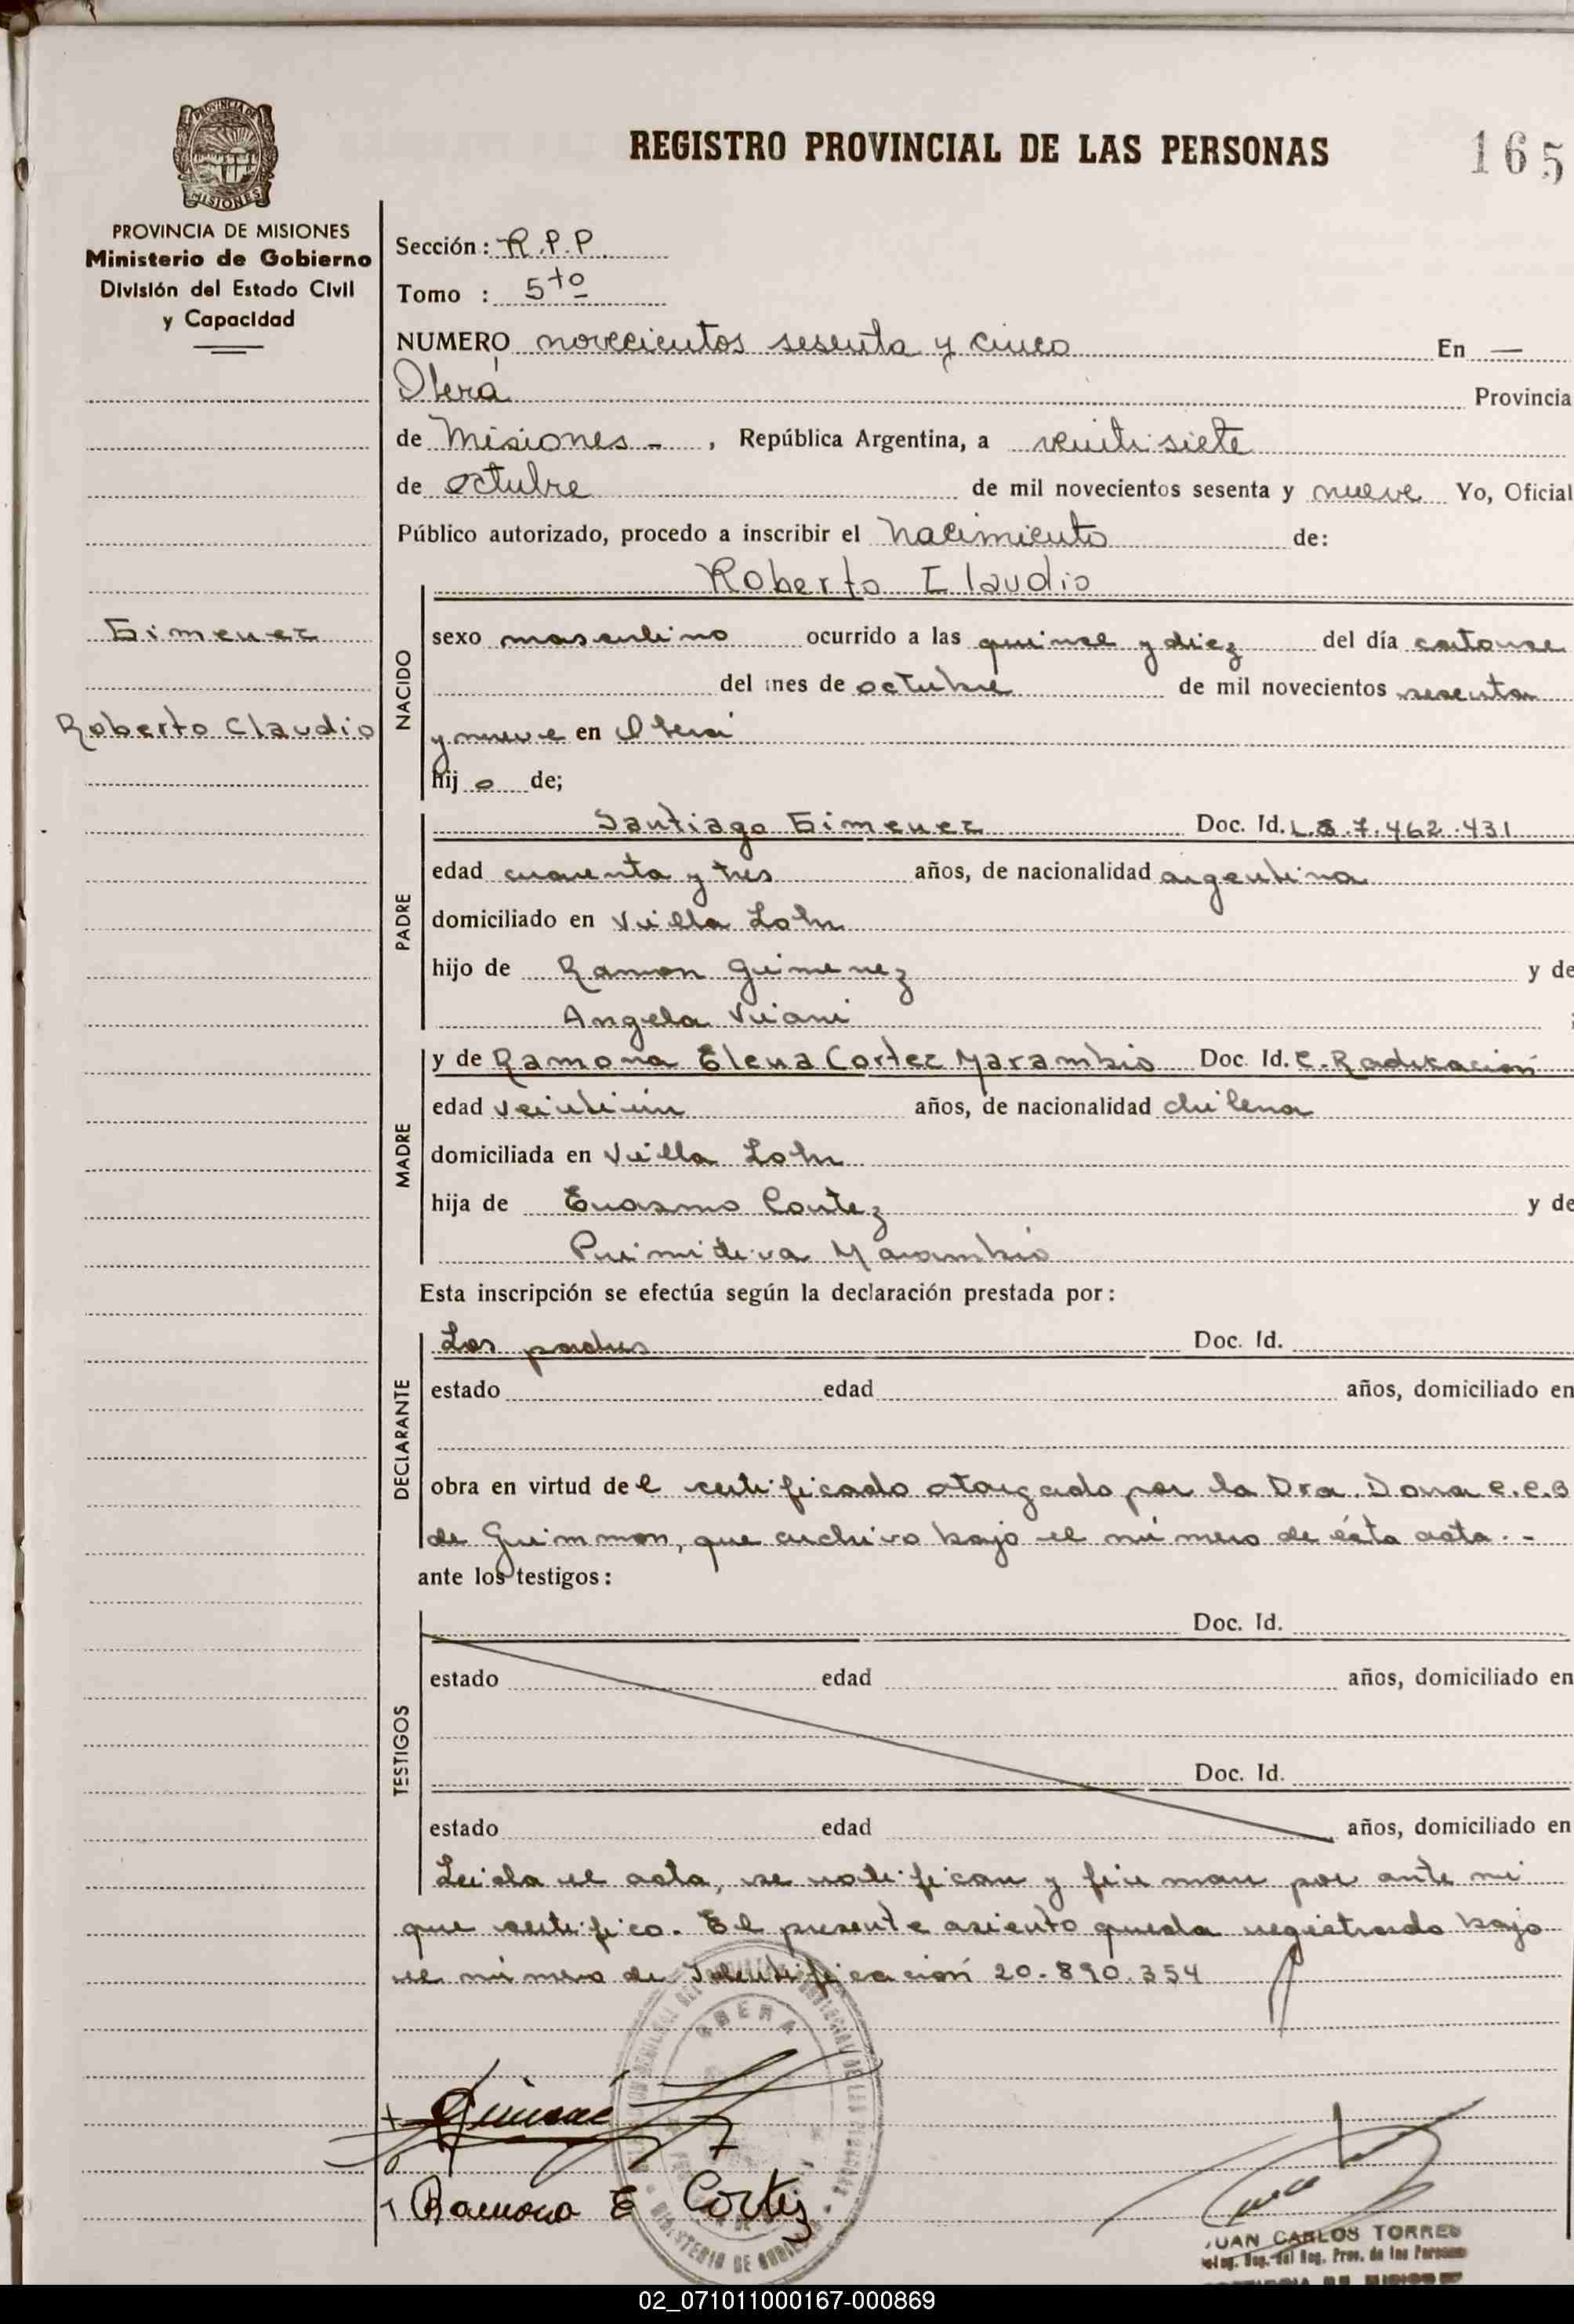 REGISTRO PROVINCIAL DE LAS PERSONAS
165
PROVINCIA DE MISIONES
MISIONES
PROVINCIA DE MISIONES
Ministerio de Gobierno
División del Estado Civil
y Capacidad
Sección: R.P.P.
Tomo : 5to
NUMERO novecientos sesenta y cinco En —
Oberá Provincia
de Misiones - , República Argentina, a veintisiete
de octubre de mil novecientos sesenta y nueve Yo, Oficial
Público autorizado, procedo a inscribir el nacimiento de:
Roberto Claudio
Gimenez
Roberto Claudio
NACIDO
sexo masculino ocurrido a las quinse y diez del día catorse
del mes de octubre de mil novecientos sesenta
y nueve en Oberá
hij o de;
PADRE
Santiago Gimenez Doc. Id. L.E 7.462.431
edad cuarenta y tres años, de nacionalidad argentina
domiciliado en Villa Lohn
hijo de Ramon Gimenez y de
Angela Viani
MADRE
y de Ramona Elena Cortez Marambio Doc. Id. C. Radicación
edad veintiún años, de nacionalidad chilena
domiciliada en Villa Lohn
hija de Erasmo Cortez y de
Primitiva Marambio
Esta inscripción se efectúa según la declaración prestada por:
DECLARANTE
Los padres Doc. Id.
estado edad años, domiciliado en
obra en virtud del certificado otorgado por la Dra. Dora C.C.B
de Grimmon, que archivo bajo el número de ésta acta.-
ante los testigos:
TESTIGOS
Doc. Id.
estado edad años, domiciliado en
Doc. Id.
estado edad años, domiciliado en
Leida el acta, se notifican y firman por ante mi
que certifico. El presente asiento queda registrado bajo
el número de Identificación 20.890.354
OBERA
Ramona E Cortez
JUAN CARLOS TORRES
02_071011000167-000869